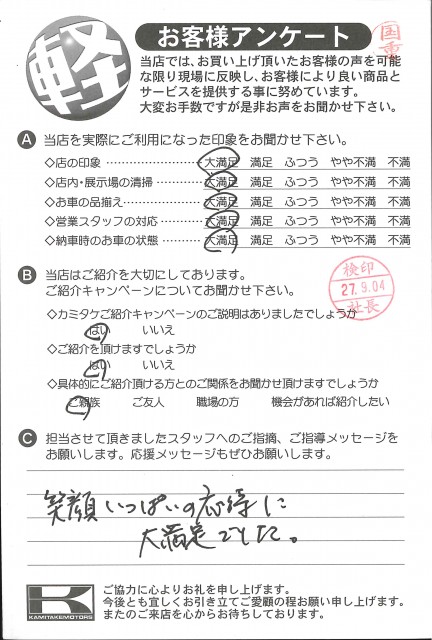 軽
お客様アンケート
当店では、お買い上げ頂いたお客様の声を可能
な限り現場に反映し、お客様により良い商品と
サービスを提供する事に努めています。
大変お手数ですが是非お声をお聞かせ下さい。
A 当店を実際にご利用になった印象をお聞かせ下さい。
◇店の印象 ………………… 大満足 満足 ふつう やや不満 不満
◇店内・展示場の清掃………… 大満足 満足 ふつう やや不満 不満
◇お車の品揃え……………… 大満足 満足 ふつう やや不満 不満
◇営業スタッフの対応………… 大満足 満足 ふつう やや不満 不満
◇納車時のお車の状態………… 大満足 満足 ふつう やや不満 不満
B 当店はご紹介を大切にしております。
ご紹介キャンペーンについてお聞かせ下さい。
検印
27.9.04
社長
◇カミタケご紹介キャンペーンのご説明はありましたでしょうか
はい いいえ
◇ご紹介を頂けますでしょうか
はい いいえ
◇具体的にご紹介頂ける方とのご関係をお聞かせ頂けますでしょうか
ご親族 ご友人 職場の方 機会があれば紹介したい
C 担当させて頂きましたスタッフへのご指摘、ご指導メッセージを
お願いします。応援メッセージもぜひお願いします。
笑顔いっぱいの応待に
大満足でした。
K
KAMITAKEMOTORS
ご協力に心よりお礼を申し上げます。
今後とも宜しくお引き立てご愛顧の程お願い申し上げます。
またのご来店を心からお待ちしております。